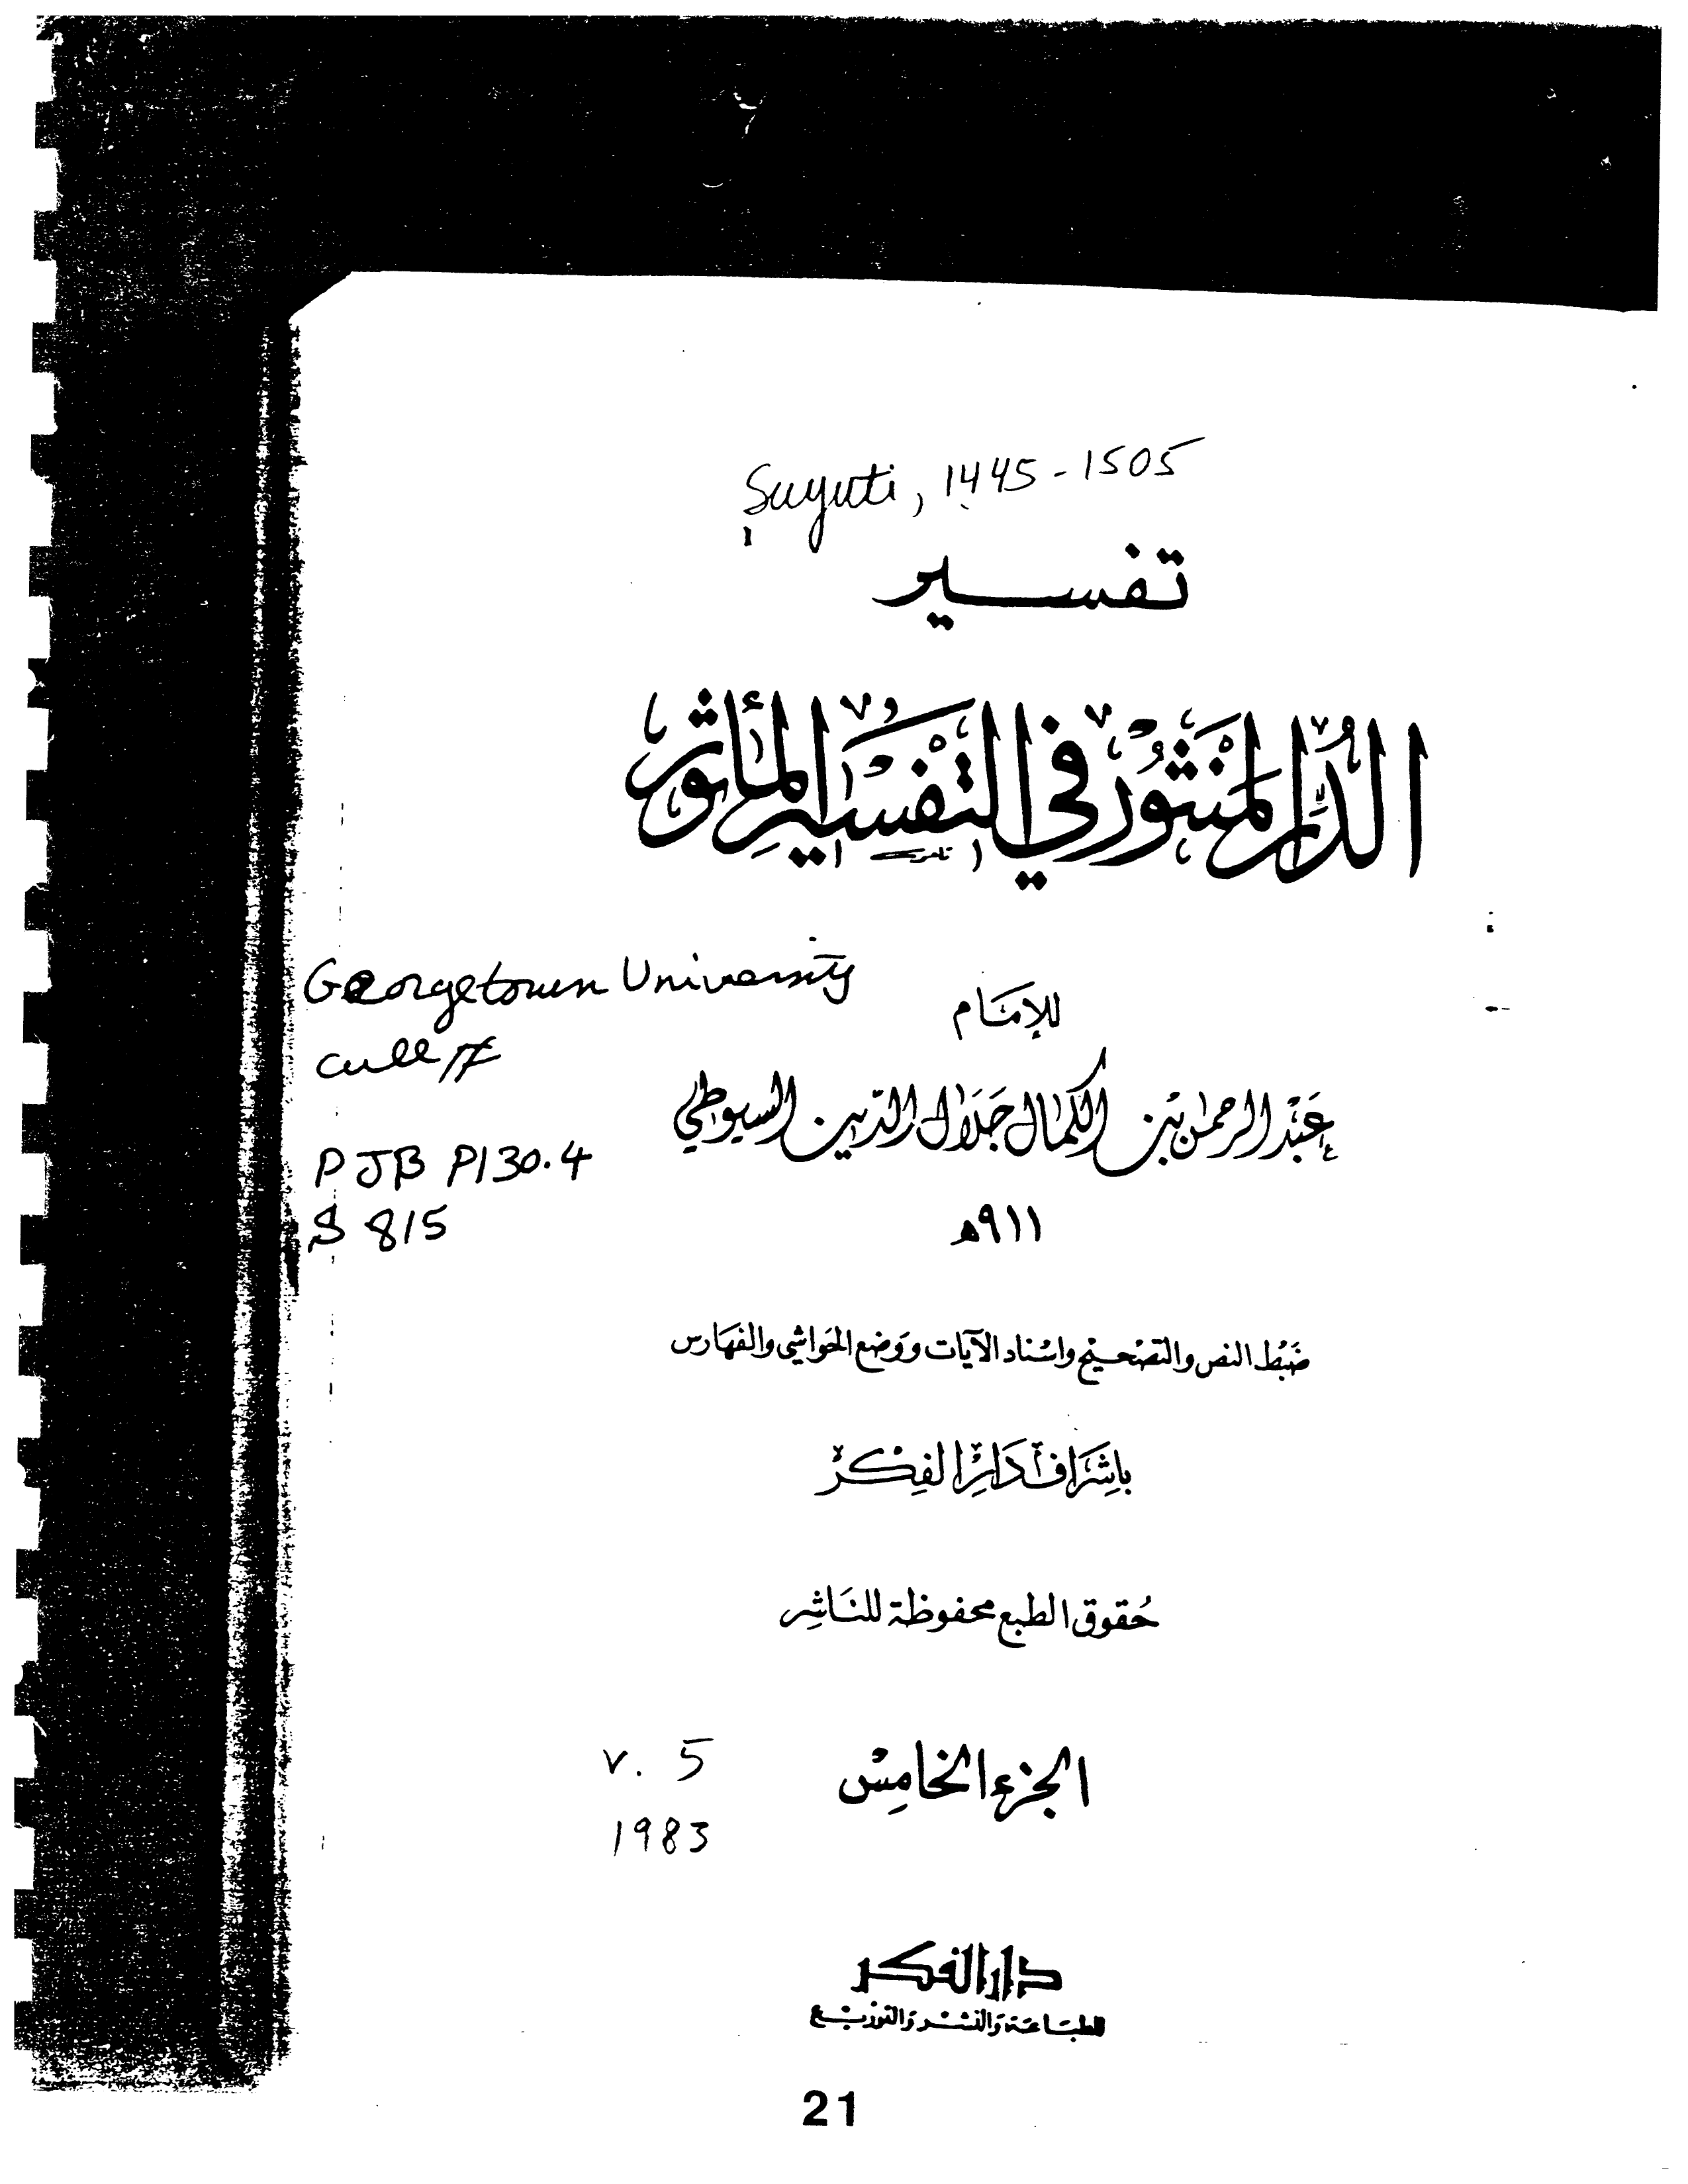 Suyuti, 1445-1505
تفسير
الدُّر المنْثُورْ في التفْسَير المأثورْ
Georgetown University
للإمَام
call #
عَبْد الرحمٰن بْن الكمَال جَلَال الدّين السيوطي
PJB P130.4
S 815
٩١١هـ
ضَبْط النص والتصْحيْح واسْناد الآيَات ووَضع الحَواشي والفهَارس
بإشرَاف دَار الفِكْر
حُقوق الطبع محفوظة للنَاشِر
v. 5
الجزء الخامِسْ
1983
دار الفكر
للطبَاعَة وَالنشْر وَالتوزيْع
21